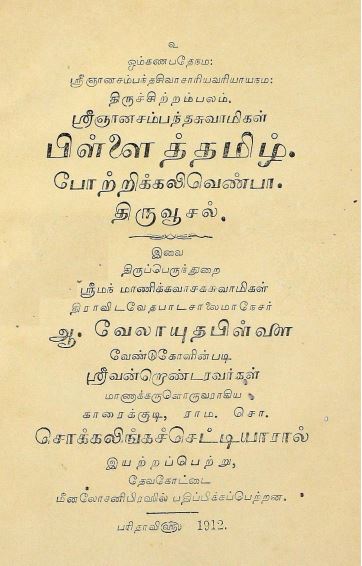 உ
ஓம்கணபதயேநம:
ஸ்ரீஞானசம்பந்தசிவாசாரியவரியாயநம:
திருச்சிற்றம்பலம்.
ஸ்ரீஞானசம்பந்தசுவாமிகள்
பிள்ளைத்தமிழ்.
போற்றிக்கலிவெண்பா.
திருவூசல்.
இவை
திருப்பெருந்துறை
ஸ்ரீமந் மாணிக்கவாசகசுவாமிகள்
திராவிடவேதபாடசாலைமாநேசர்
ஆ. வேலாயுதபிள்ளை
வேண்டுகோளின்படி
ஸ்ரீவன்றொண்டரவர்கள்
மாணாக்கருளொருவராகிய
காரைக்குடி, ராம. சொ.
சொக்கலிங்கச்செட்டியாரால்
இயற்றப்பெற்று,
தேவகோட்டை
மீனலோசனிபிரஸில் பதிப்பிக்கப்பெற்றன.
பரிதாவிளு 1912.